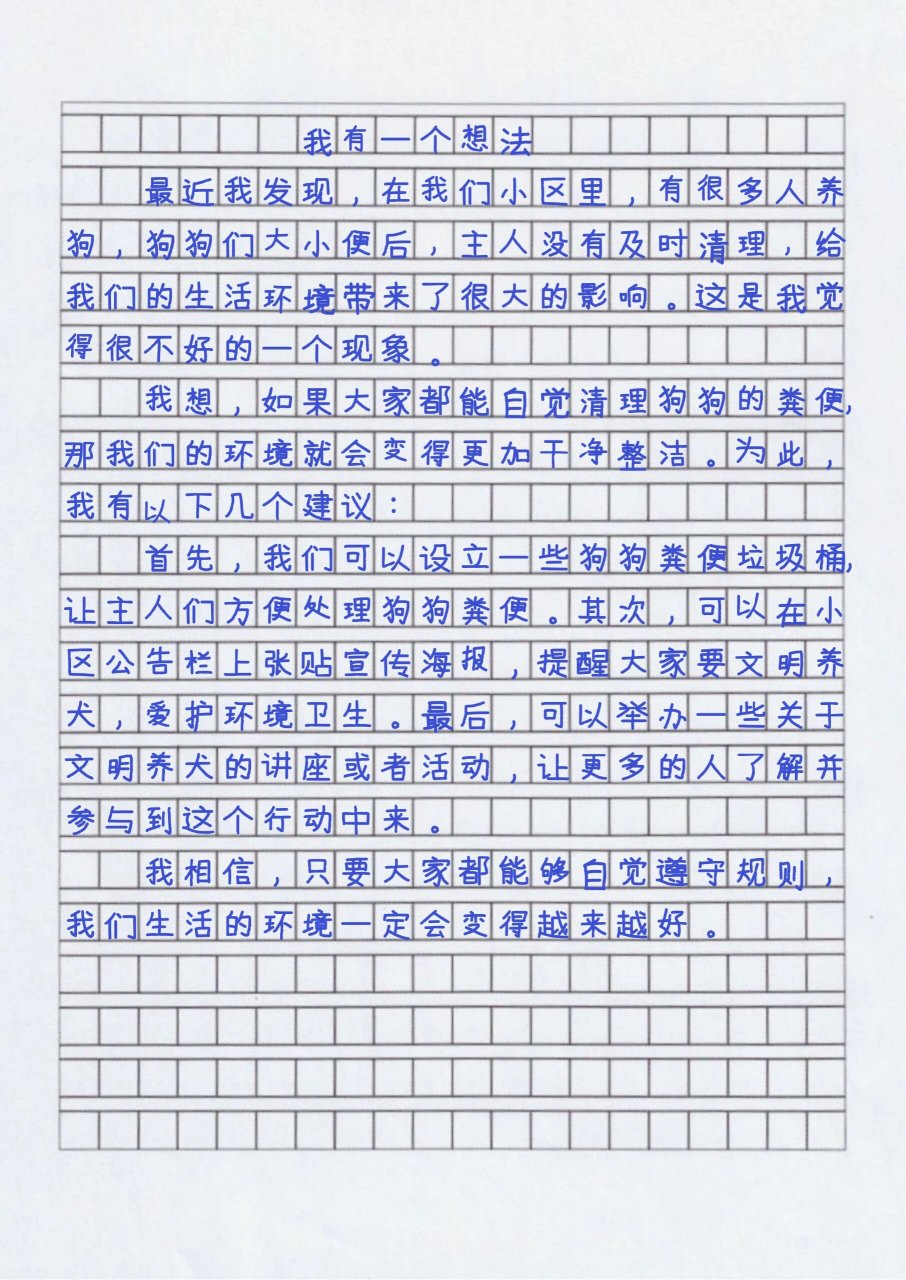 我有一个想法
最近我发现，在我们小区里，有很多人养
狗，狗狗们大小便后，主人没有及时清理，给
我们的生活环境带来了很大的影响。这是我觉
得很不好的一个现象。
我想，如果大家都能自觉清理狗狗的粪便，
那我们的环境就会变得更加干净整洁。为此，
我有以下几个建议：
首先，我们可以设立一些狗狗粪便垃圾桶，
让主人们方便处理狗狗粪便。其次，可以在小
区公告栏上张贴宣传海报，提醒大家要文明养
犬，爱护环境卫生。最后，可以举办一些关于
文明养犬的讲座或者活动，让更多的人了解并
参与到这个行动中来。
我相信，只要大家都能够自觉遵守规则，
我们生活的环境一定会变得越来越好。